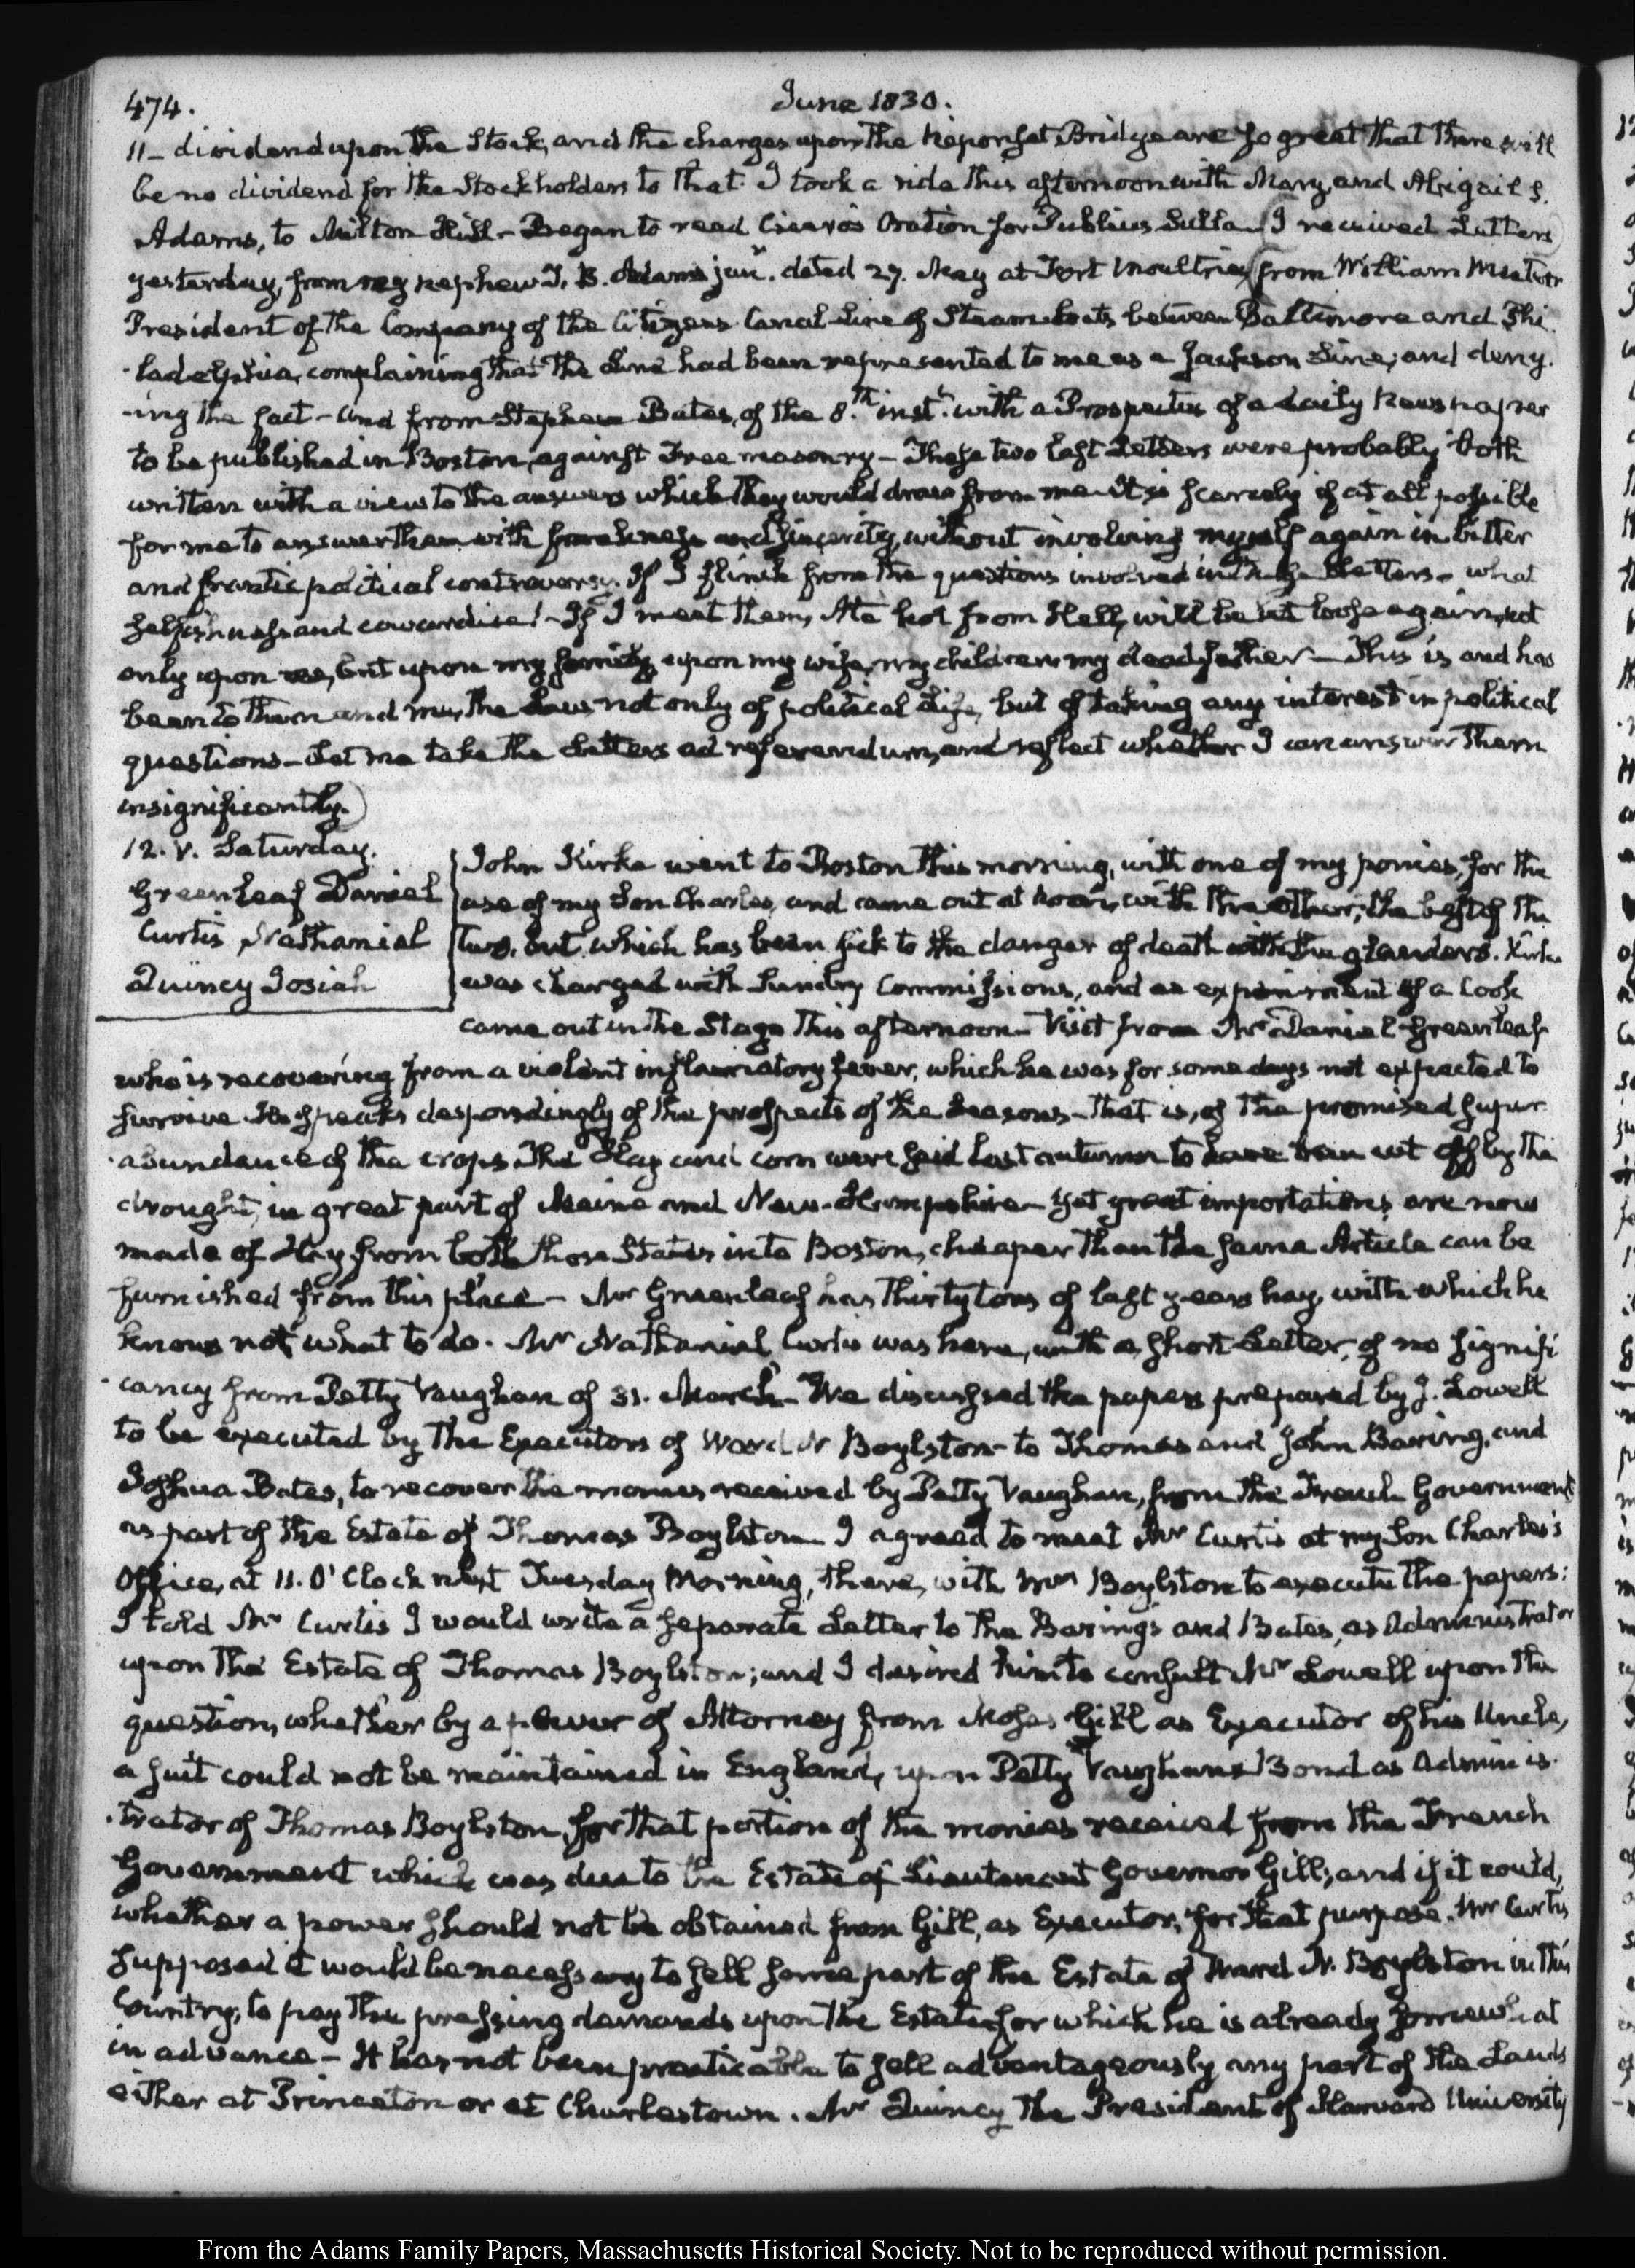 474.
June 1830.
11– dividend upon the Stock, and the charges upon the Neponset Bridge are so great that there will
be no dividend for the Stockholders to that. I took a ride this afternoon with Mary, and Abigail S.
Adams, to Milton Hill – Began to read Cicero's Oration for Publius Sulla – (I received Letters
yesterday, from my nephew J. B. Adams junr. dated 27. May at Fort Moultrie, from William
President of the Company of the Citizens Canal Line of Steam-boats between Baltimore and Phi
-ladelphia, complaining that the Line had been represented to me as a Jackson Line, and deny-
-ing the fact – and from Stephen Bates, of the 8.th inst.t with a Prospectus of a daily Newspaper
to be published in Boston, against Free masonry – These two last Letters were probably both
written with a view to the answers which they would draw from me. It is scarcely if at all possible
for me to answer them with frankness and sincerity, without involving myself again in bitter
and frantic political controversy. If I flinch from the questions involved in these Letters – what
selfishness and cowardise! – If I meet them, Ate hot from Hell, will be let loose again, not
only upon me, but upon my family, upon my wife, my children, my dead father – This is and has
been to them and me, the Law not only of political Life, but of taking any interest in political
questions – Let me take the Letters ad referendum, and reflect whether I can answer them
insignificantly.)
12. V. Saturday.
Greenleaf Daniel
Curtis Nathanial
Quincy Josiah
John Kirke went to Boston this morning, with one of my ponies, for the
use of my Son Charles, and came out at noon, with the other, the best of the
two, but which has been sick to the danger of death with the glanders. Kirke
was charged with Sundry Commissions, and an experiment of a Cook
came out in the Stage this afternoon – Visit from Mr Daniel Greenleaf
who is recovering from a violent inflammatory fever, which he was for some days not expected to
survive. He speaks despondingly of the prospects of the Season – that is, of the promised super
-abundance of the crops. The Hay and corn were said last autumn to have been cut off by the
drought, in great part of Maine and New-Hampshire – Yet great importations are now
made of Hay from both those States into Boston, cheaper than the same Article can be
furnished from this place – Mr Greenleaf has thirty tons of last years hay, with which he
knows not what to do. Mr Nathanial Curtis was here, with a short Letter, of no signifi
-cancy from Petty Vaughan of 31. March – We discussed the papers prepared by J. Lowell
to be executed by the Executors of Ward Nr Boylston – to Thomas and John Baring, and
Joshua Bates, to recover the monies received by Petty Vaughan, from the French Government
as part of the Estate of Thomas Boylston. I agreed to meet Mr Curtis at my Son Charles's
Office, at 11. O'Clock next Tuesday Morning, there, with Mrs Boylston to execute the papers:
I told Mr Curtis I would write a separate Letter to the Barings and Bates, as Administrator
upon the Estate of Thomas Boylston; and I desired him to consult Mr Lowell upon the
question, whether by a power of Attorney from Moses Gill as Executor of his Uncle,
a suit could not be maintained in England, upon Petty Vaughan's Bond as Adminis-
-trator of Thomas Boylston, for that portion of the monies received from the French
Government which was due to the Estate of Lieutenant Governor Gill; and if it could,
whether a power should not be obtained from Gill, as Executor, for that purpose. Mr Curtis
supposed it would be necessary to sell some part of the Estate of Ward N. Boylston in this
Country, to pay the pressing demands upon the Estate, for which he is already somewhat
in advance – It has not been practicable to sell advantageously any part of the Lands
either at Princeton or at Charlestown. Mr Quincy the President of Harvard University
From the Adams Family Papers, Massachusetts Historical Society. Not to be reproduced without permission.